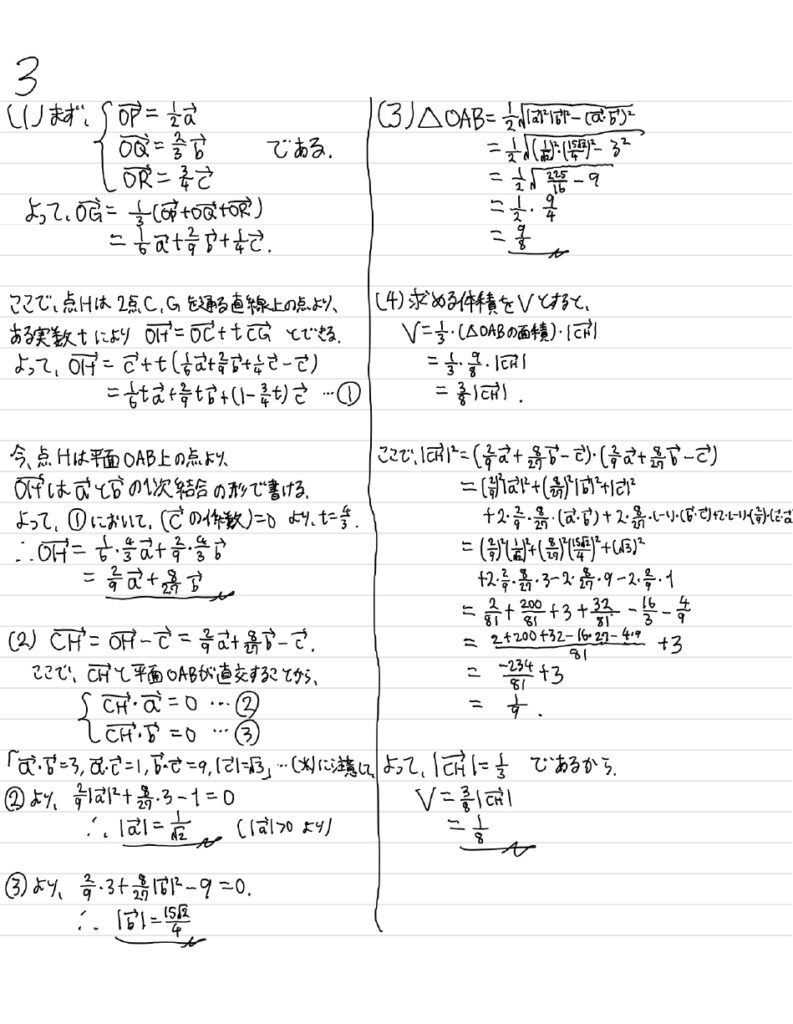 3
(1) まず、
{ OP→ = 1/2 a→
OQ→ = 2/3 b→ である.
OR→ = 3/4 c→
よって、OG→ = 1/3 (OP→+OQ→+OR→)
= 1/6 a→ + 2/9 b→ + 1/4 c→.
ここで、点Hは2点C,Gを通る直線上の点より、
ある実数tにより OH→ = OC→ + t CG→ とできる.
よって、OH→ = c→ + t (1/6 a→ + 2/9 b→ + 1/4 c→ − c→)
= 1/6 t a→ + 2/9 t b→ + (1 − 3/4 t) c→ … ①
今、点Hは平面OAB上の点より、
OH→ は a→ と b→ の1次結合の形で書ける.
よって、①において、(c→ の係数)=0 より、t=4/3.
∴ OH→ = 1/6・4/3 a→ + 2/9・4/3 b→
= 2/9 a→ + 8/27 b→
(2) CH→ = OH→ − c→ = 2/9 a→ + 8/27 b→ − c→.
ここで、CH→ と平面OABが直交することから、
{ CH→・a→ = 0 … ②
CH→・b→ = 0 … ③
「a→・b→=3, a→・c→=1, b→・c→=9, |c→|=√3」…(※)に注意して、
②より、2/9 |a→|² + 8/27・3 − 1 = 0
∴ |a→| = 1/√2 (|a→|>0 より)
③より、2/9・3 + 8/27 |b→|² − 9 = 0.
∴ |b→| = 15√2/4
(3) △OAB = 1/2 √(|a→|²|b→|² − (a→・b→)²)
= 1/2 √((1/√2)²・(15√2/4)² − 3²)
= 1/2 √(225/16 − 9)
= 1/2・9/4
= 9/8
(4) 求める体積をVとすると、
V = 1/3・(△OABの面積)・|CH→|
= 1/3・9/8・|CH→|
= 3/8 |CH→|.
ここで、|CH→|² = (2/9 a→ + 8/27 b→ − c→)・(2/9 a→ + 8/27 b→ − c→)
= (2/9)²|a→|² + (8/27)²|b→|² + |c→|²
+ 2・2/9・8/27・(a→・b→) + 2・8/27・(−1)・(b→・c→) + 2・(−1)・(2/9)・(c→・a→)
= (2/9)²(1/√2)² + (8/27)²(15√2/4)² + (√3)²
+ 2・2/9・8/27・3 − 2・8/27・9 − 2・2/9・1
= 2/81 + 200/81 + 3 + 32/81 − 16/3 − 4/9
= (2+200+32−16・27−4・9)/81 + 3
= −234/81 + 3
= 1/9.
よって、|CH→| = 1/3 であるから、
V = 3/8 |CH→|
= 1/8